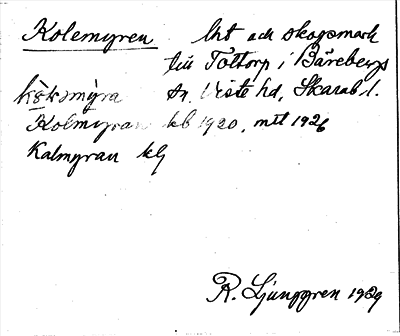 Kolemyren lht och skogsmark
till Toltorp i Bärebergs
sn. Viste hd, Skarab. l.
Kolmyran kb 1920, mtl 1926
Kalmyran kg
R. Ljunggren 1929